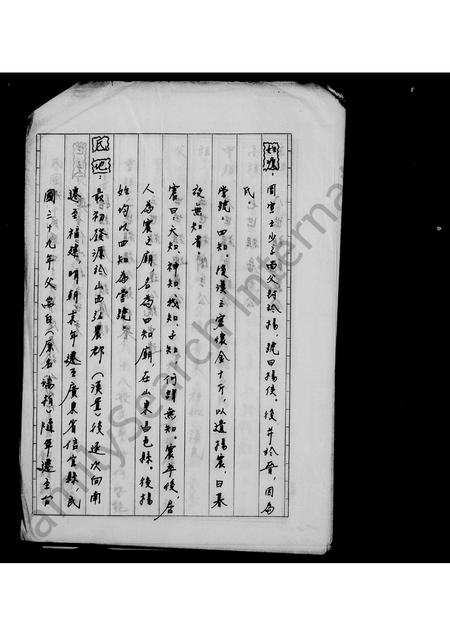 始應:周宣王少之西父封於揚,號曰揚侯。後并於晉,因為
氏。
堂號:四知。後漢王密懷金十斤,以遺揚震,日暮
夜無知者
震曰:天知、神知、我知、子知,何謂無知。震卒後,居
人為震之廟,名為四知廟,在山東昌邑縣。後揚
始均以四知為堂號
氏地:最初發源於山西弘農郡(漢置)後逐次向南
遷至福建,明朝末年遷至廣東省信宜縣,民
國三十九年父岳自(原名 )隨軍遷至台
FamilySearch International